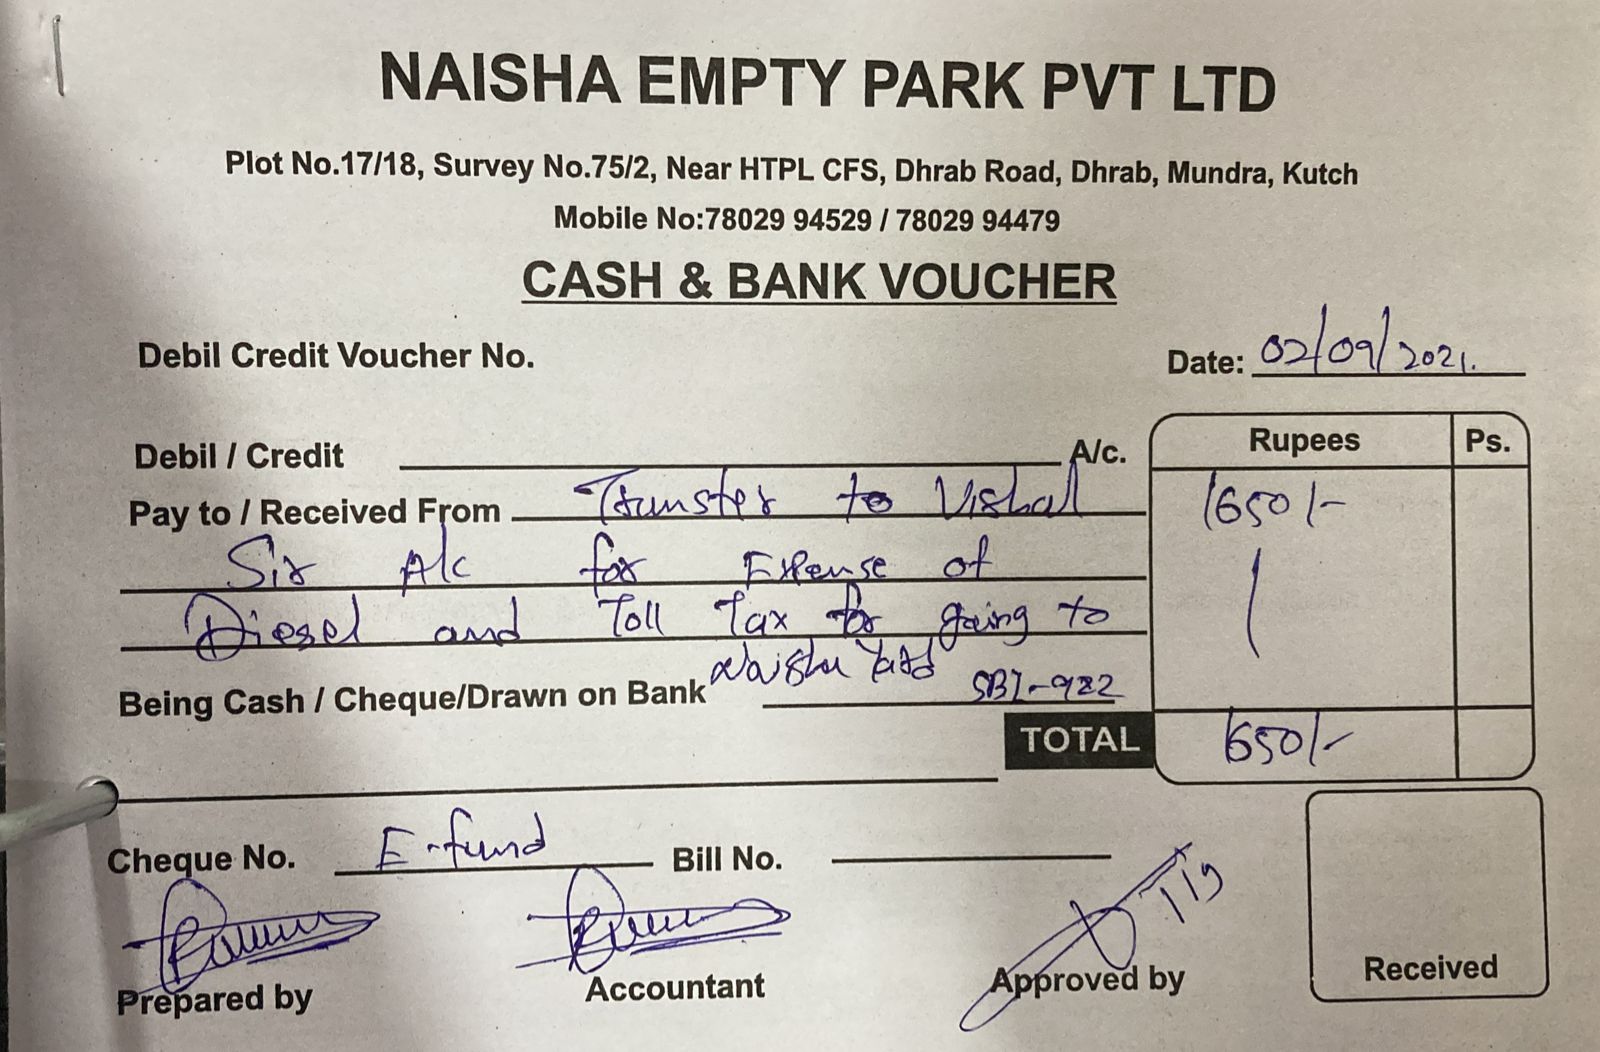 NAISHA EMPTY PARK PVT LTD
Plot No.17/18, Survey No.75/2, Near HTPL CFS, Dhrab Road, Dhrab, Mundra, Kutch
Mobile No:78029 94529 / 78029 94479
CASH & BANK VOUCHER
Debil Credit Voucher No.
Date: 02/09/2021.
Debil / Credit A/c.
Rupees Ps.
Pay to / Received From Transfer to Vishal
1650/-
Sir A/c for Expense of
Diesel and Toll Tax for going to
Naisha Yard
Being Cash / Cheque/Drawn on Bank SBI-922
TOTAL 1650/-
Cheque No. E-fund Bill No.
Prepared by
Accountant
Approved by
Received